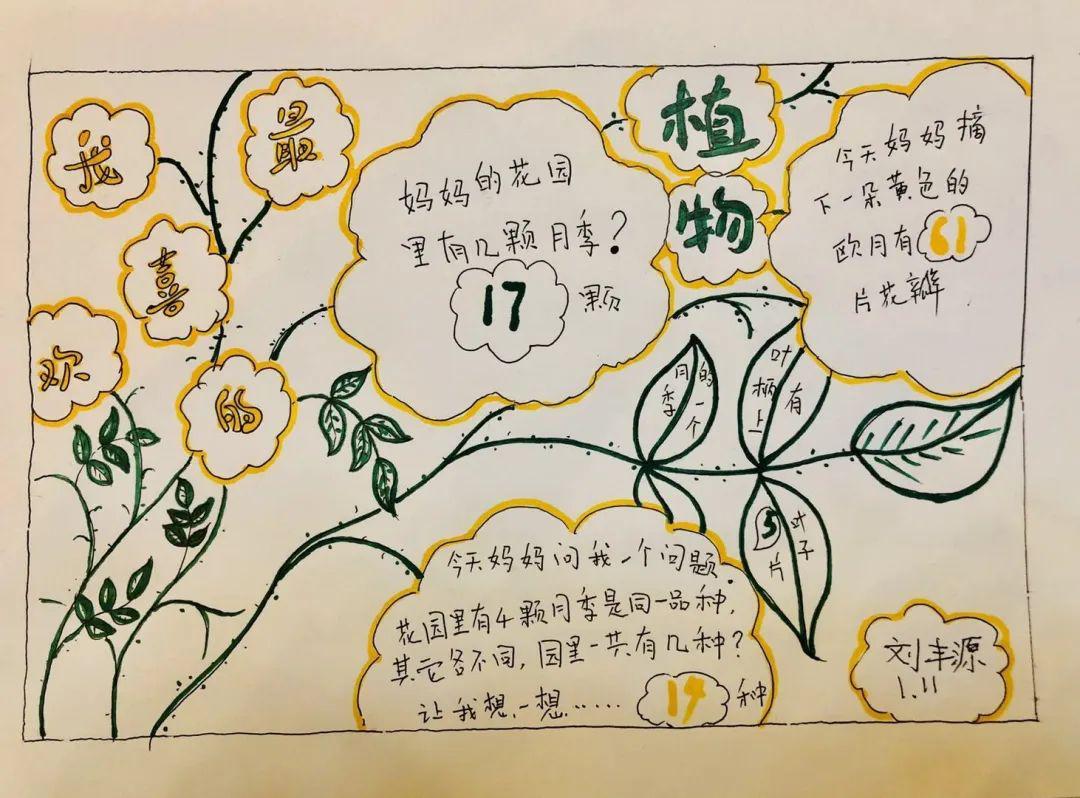 我最
喜
欢
的
植
物
妈妈的花园
里有几颗月季?
17 颗
今天妈妈摘
下一朵黄色的
欧月有61
片花瓣
月季
的一个
叶柄上
有
5片
叶子
今天妈妈问我一个问题,
花园里有4颗月季是同一品种,
其它各不同,园里一共有几种?
让我想一想……
14种
刘丰源
1.11